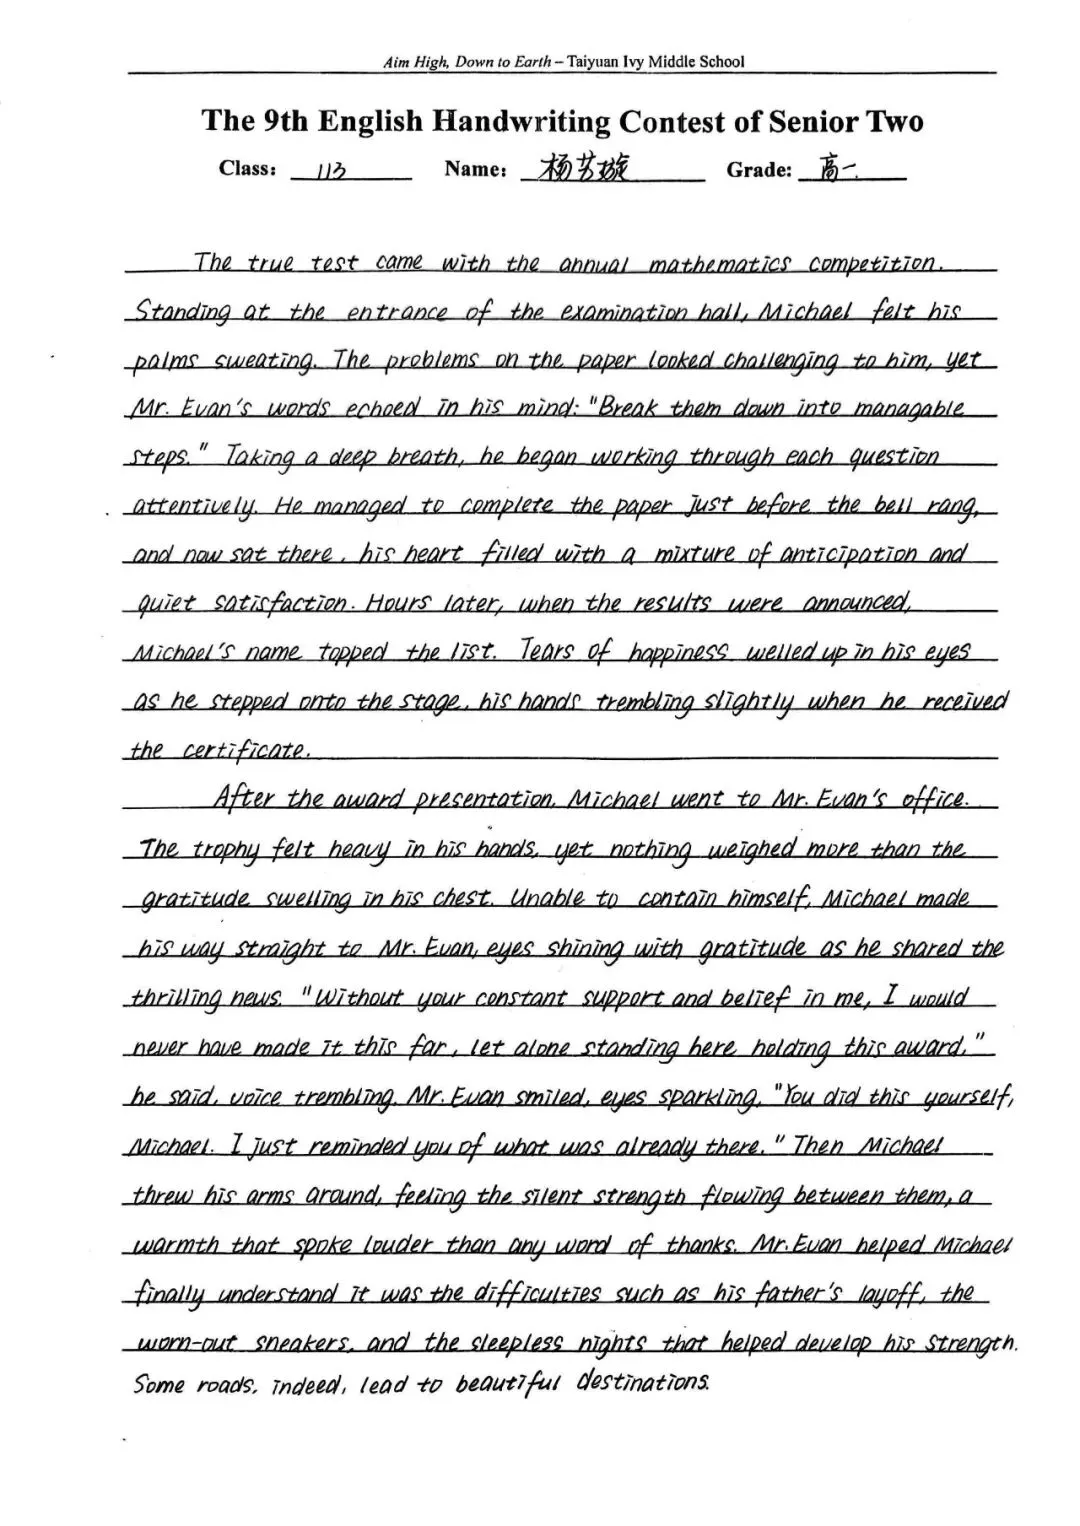 Aim High, Down to Earth – Taiyuan Ivy Middle School
The 9th English Handwriting Contest of Senior Two
Class: 113 Name: 杨艺璇 Grade: 高二
The true test came with the annual mathematics competition.
Standing at the entrance of the examination hall, Michael felt his
palms sweating. The problems on the paper looked challenging to him, yet
Mr. Evan's words echoed in his mind: "Break them down into managable
steps." Taking a deep breath, he began working through each question
attentively. He managed to complete the paper just before the bell rang,
and now sat there, his heart filled with a mixture of anticipation and
quiet satisfaction. Hours later, when the results were announced,
Michael's name topped the list. Tears of happiness welled up in his eyes
as he stepped onto the stage, his hands trembling slightly when he received
the certificate.
After the award presentation, Michael went to Mr. Evan's office.
The trophy felt heavy in his hands, yet nothing weighed more than the
gratitude swelling in his chest. Unable to contain himself, Michael made
his way straight to Mr. Evan, eyes shining with gratitude as he shared the
thrilling news. "Without your constant support and belief in me, I would
never have made it this far, let alone standing here holding this award,"
he said, voice trembling. Mr. Evan smiled, eyes sparkling, "You did this yourself,
Michael. I just reminded you of what was already there." Then Michael
threw his arms around, feeling the silent strength flowing between them, a
warmth that spoke louder than any word of thanks. Mr. Evan helped Michael
finally understand it was the difficulties such as his father's layoff, the
worn-out sneakers, and the sleepless nights that helped develop his strength.
Some roads, indeed, lead to beautiful destinations.